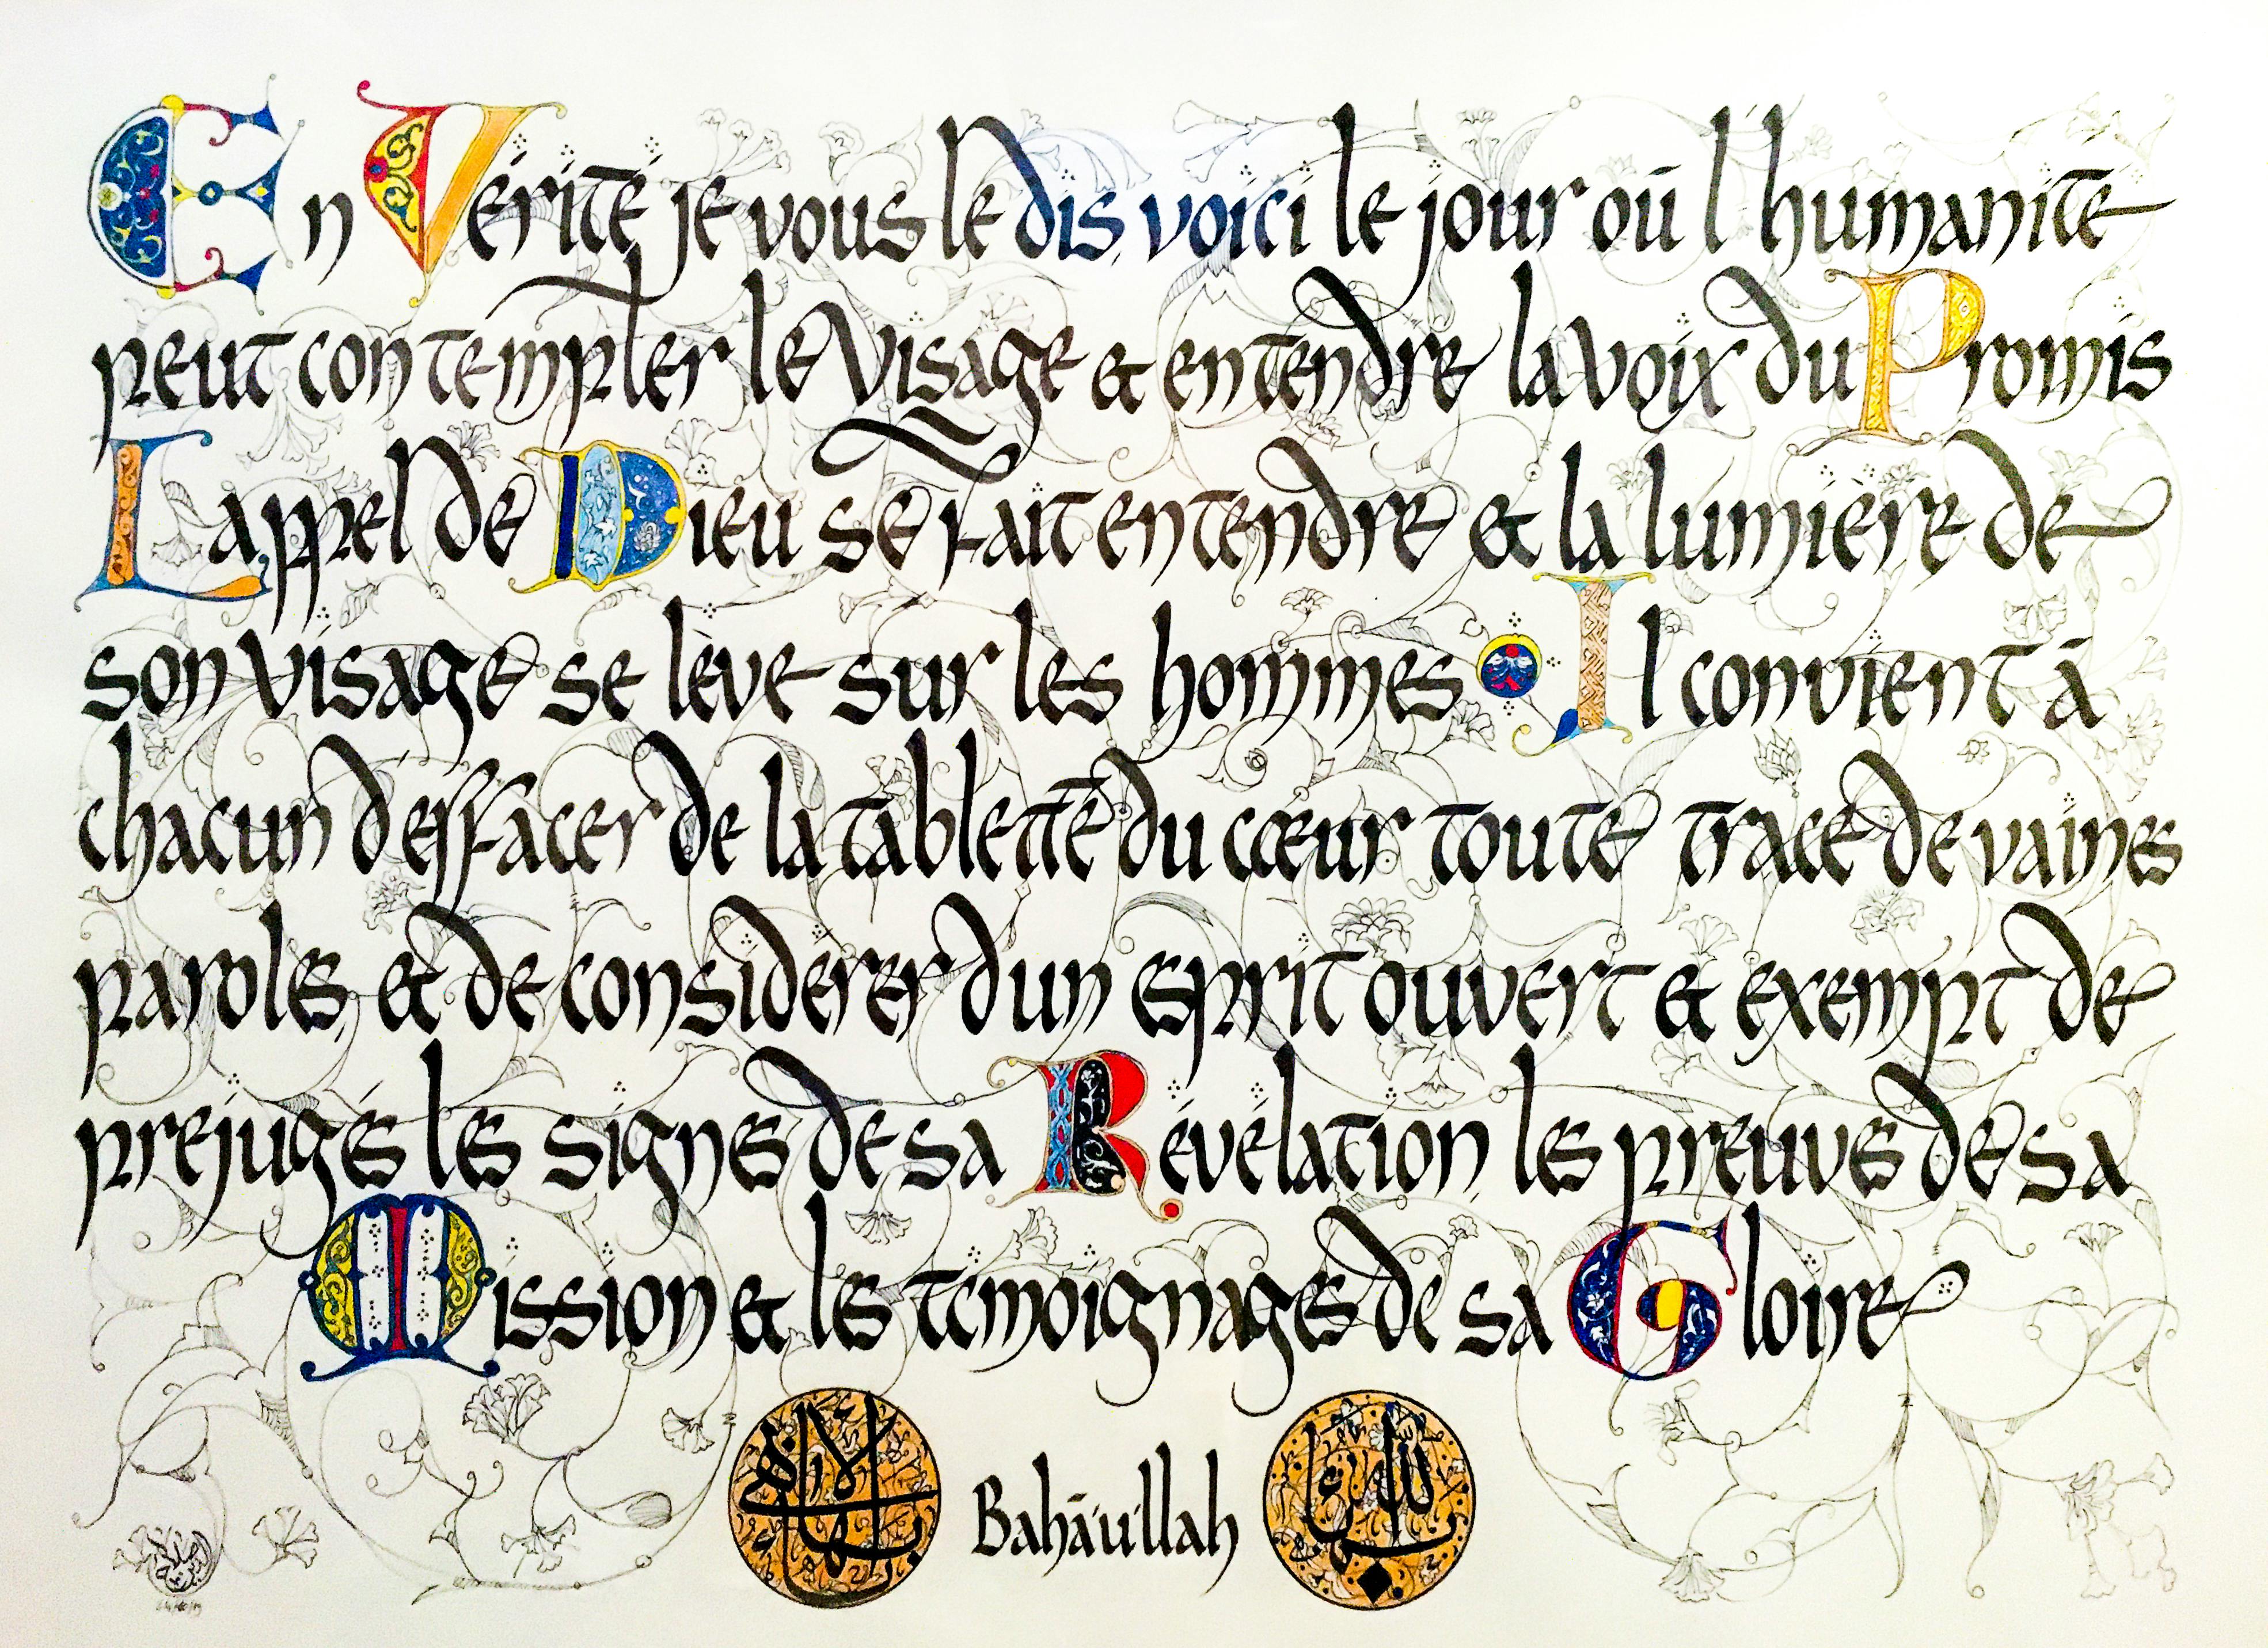 En Vérité je vous le dis, voici le jour où l'humanité
peut contempler le Visage & entendre la voix du Promis
L'appel de Dieu se fait entendre & la lumière de
son visage se lève sur les hommes Il convient à
chacun d'effacer de la tablette du cœur toute trace de vaines
paroles, & de considérer d'un esprit ouvert & exempt de
préjugés les signes de sa Révélation, les preuves de sa
Mission & les témoignages de sa Gloire
Bahá'u'lláh